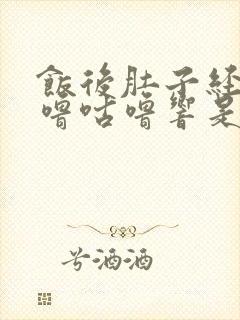 飯後肚子經
嚕咕嚕響是
兮酒酒